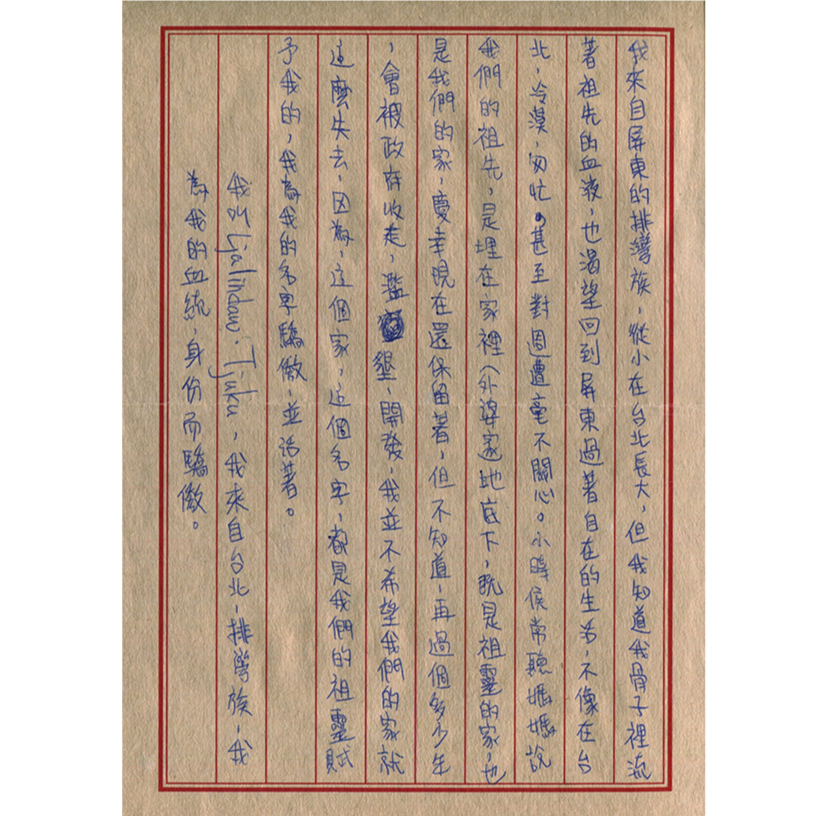 我來自屏東的排灣族，從小在台北長大，但我知道我骨子裡流
著祖先的血液，也渴望回到屏東過著自在的生活，不像在台
北，冷漠，匆忙。甚至對週遭毫不關心。小時侯常聽媽媽說
我們的祖先，是埋在家裡（外婆家）地底下，既是祖靈的家，也
是我們的家，慶幸現在還保留著，但不知道，再過個多少年
，會被政府收走，濫墾，開發，我並不希望我們的家就
這麼失去，因為，這個家，這個名字，都是我們的祖靈賦
予我的，我為我的名字驕傲，並活著。
我叫Ljalindaw．Tjuku，我來自台北，排灣族，我
為我的血統，身份而驕傲。